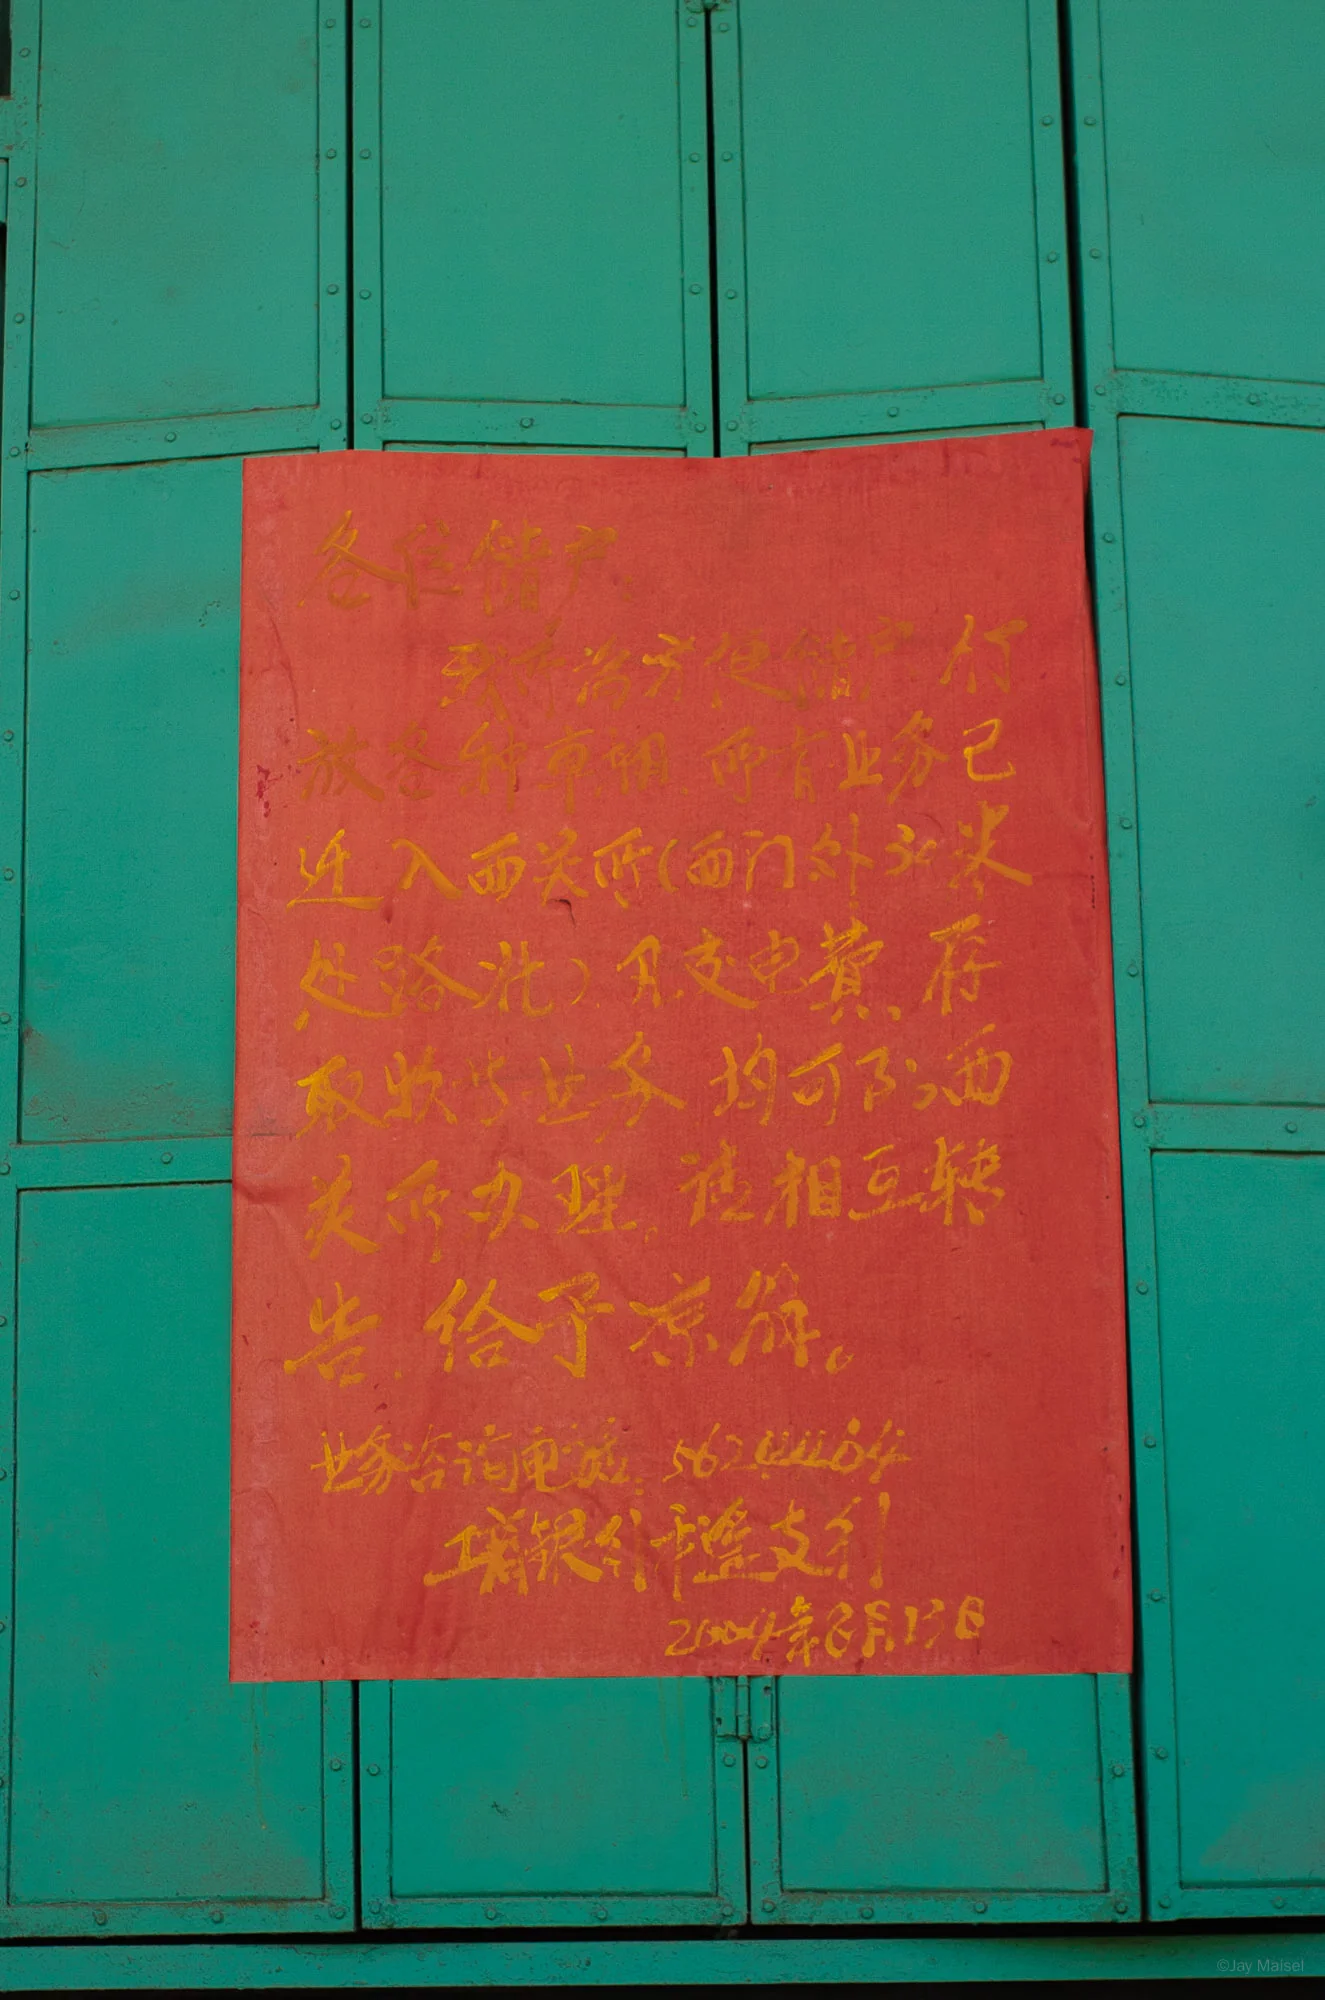 各位储户:
我所为方便储户 行
放各种 所有业务已
迁入西关所(西门外 头
处路北)。凡交电费、存
取款等业务 均可到西
关所办理。请相互转
告。给予谅解。
业务咨询电话:
工商银行 支行
2004年8月13日
©Jay Maisel